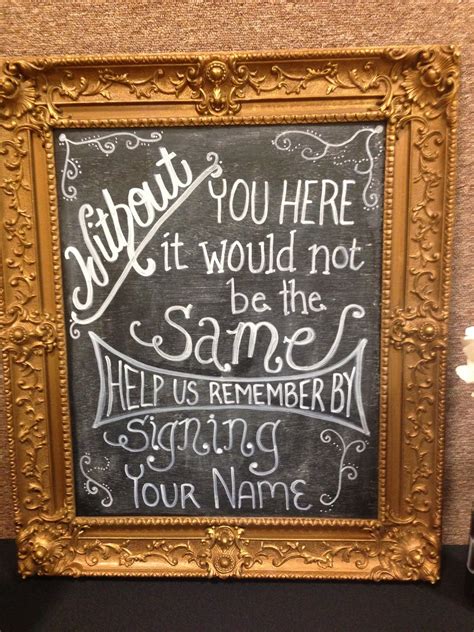 Without YOU HERE
it would not
be the
Same
HELP US REMEMBER BY
signing
YOUR NAME